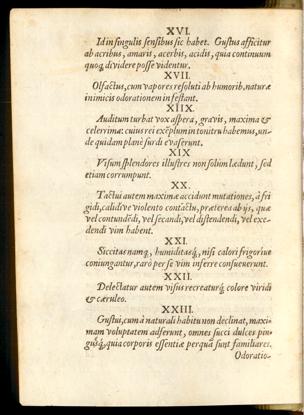 XVI.
Id in singulis sensibus sic habet. Gustus afficitur
ab acribus, amaris, acerbis, acidis, quia continuum
quoq; dividere posse videntur.
XVII.
Olfactus, cum vapores resoluti ab humorib. naturæ
inimicis odorationem infestant.
XIIX.
Auditum turbat vox aspera, gravis, maxima &
celerrima: cuius rei exẽplum in tonitru habemus, un-
de quidam planè surdi evaserunt.
XIX
Visum splendores illustres non solùm lædunt, sed
etiam corrumpunt.
XX.
Tactui autem maximæ accidunt mutationes, à fri
gidi, calidive violento contactu, præterea ab ijs, quæ
vel contundẽdi, vel secandi, vel distendendi, vel exe-
dendi vim habent.
XXI.
Siccitas namq;, humiditasq́;, nisi calori frigorive
coniungantur, rarò per se vim inferre consueuerunt.
XXII.
Delectatur autem visus recreaturq́; colore viridi
& cæruleo.
XXIII.
Gustui, cum à naturali habitu non declinat, maxi-
mam voluptatem adferunt, omnes succi dulces pin-
guesq́;, quia corporis essentiæ perquã sunt familiares.
Odoratio-